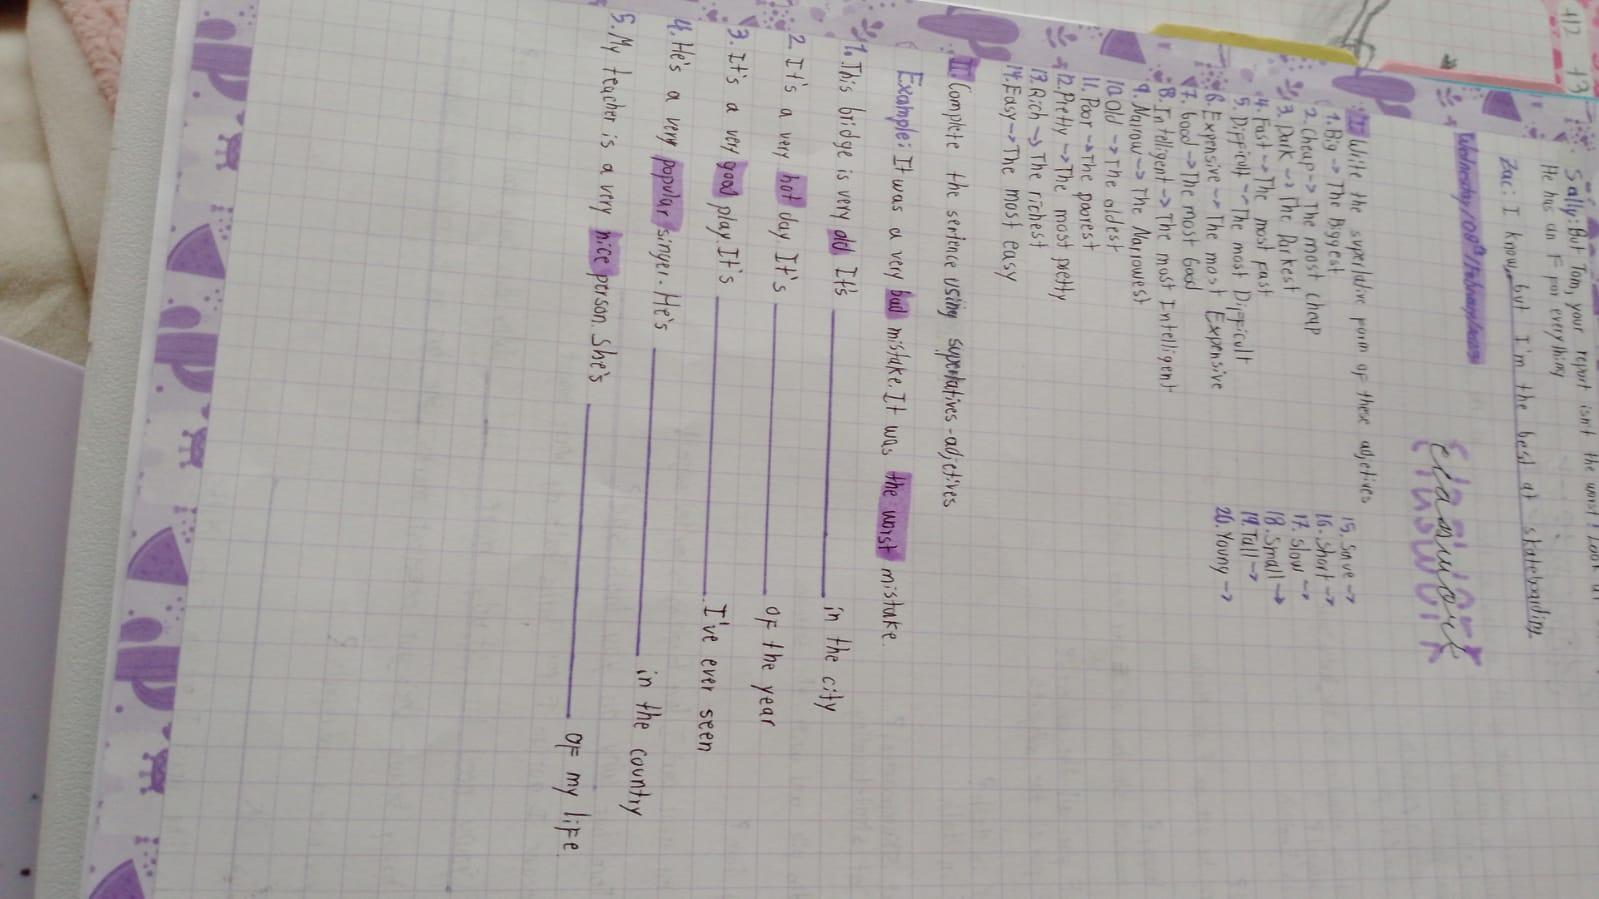 Sally: But Tom, your report isn't the worst! Look at
He has an F for everything
Zac: I know, but I'm the best at skateboarding.
classwork
I. Write the superlative form of these adjetives
1. Big -> The Biggest
2. Cheap -> The most chap
3. Dark -> The Darkest
4. Fast -> The most fast
5. Difficult -> The most Difficult
6. Expensive -> The most Expensive
7. Good -> The most Good
8. Intelligent -> The most Intelligent
9. Narrow -> The Narrowest
10. Old -> The oldest
11. Poor -> The poorest
12. Pretty -> The most pretty
13. Rich -> The richest
14. Easy -> The most easy
15. Save ->
16. Short ->
17. Slow ->
18. Small ->
19. Tall ->
20. Young ->
II. Complete the sentence using superlatives-adjetives
Example: It was a very bad mistake. It was the worst mistake.
1. This bridge is very old It's ________ in the city
2. It's a very hot day. It's ________ of the year
3. It's a very good play. It's ________. I've ever seen
4. He's a very popular singer. He's ________ in the country
5. My teacher is a very nice person. She's ________ of my life